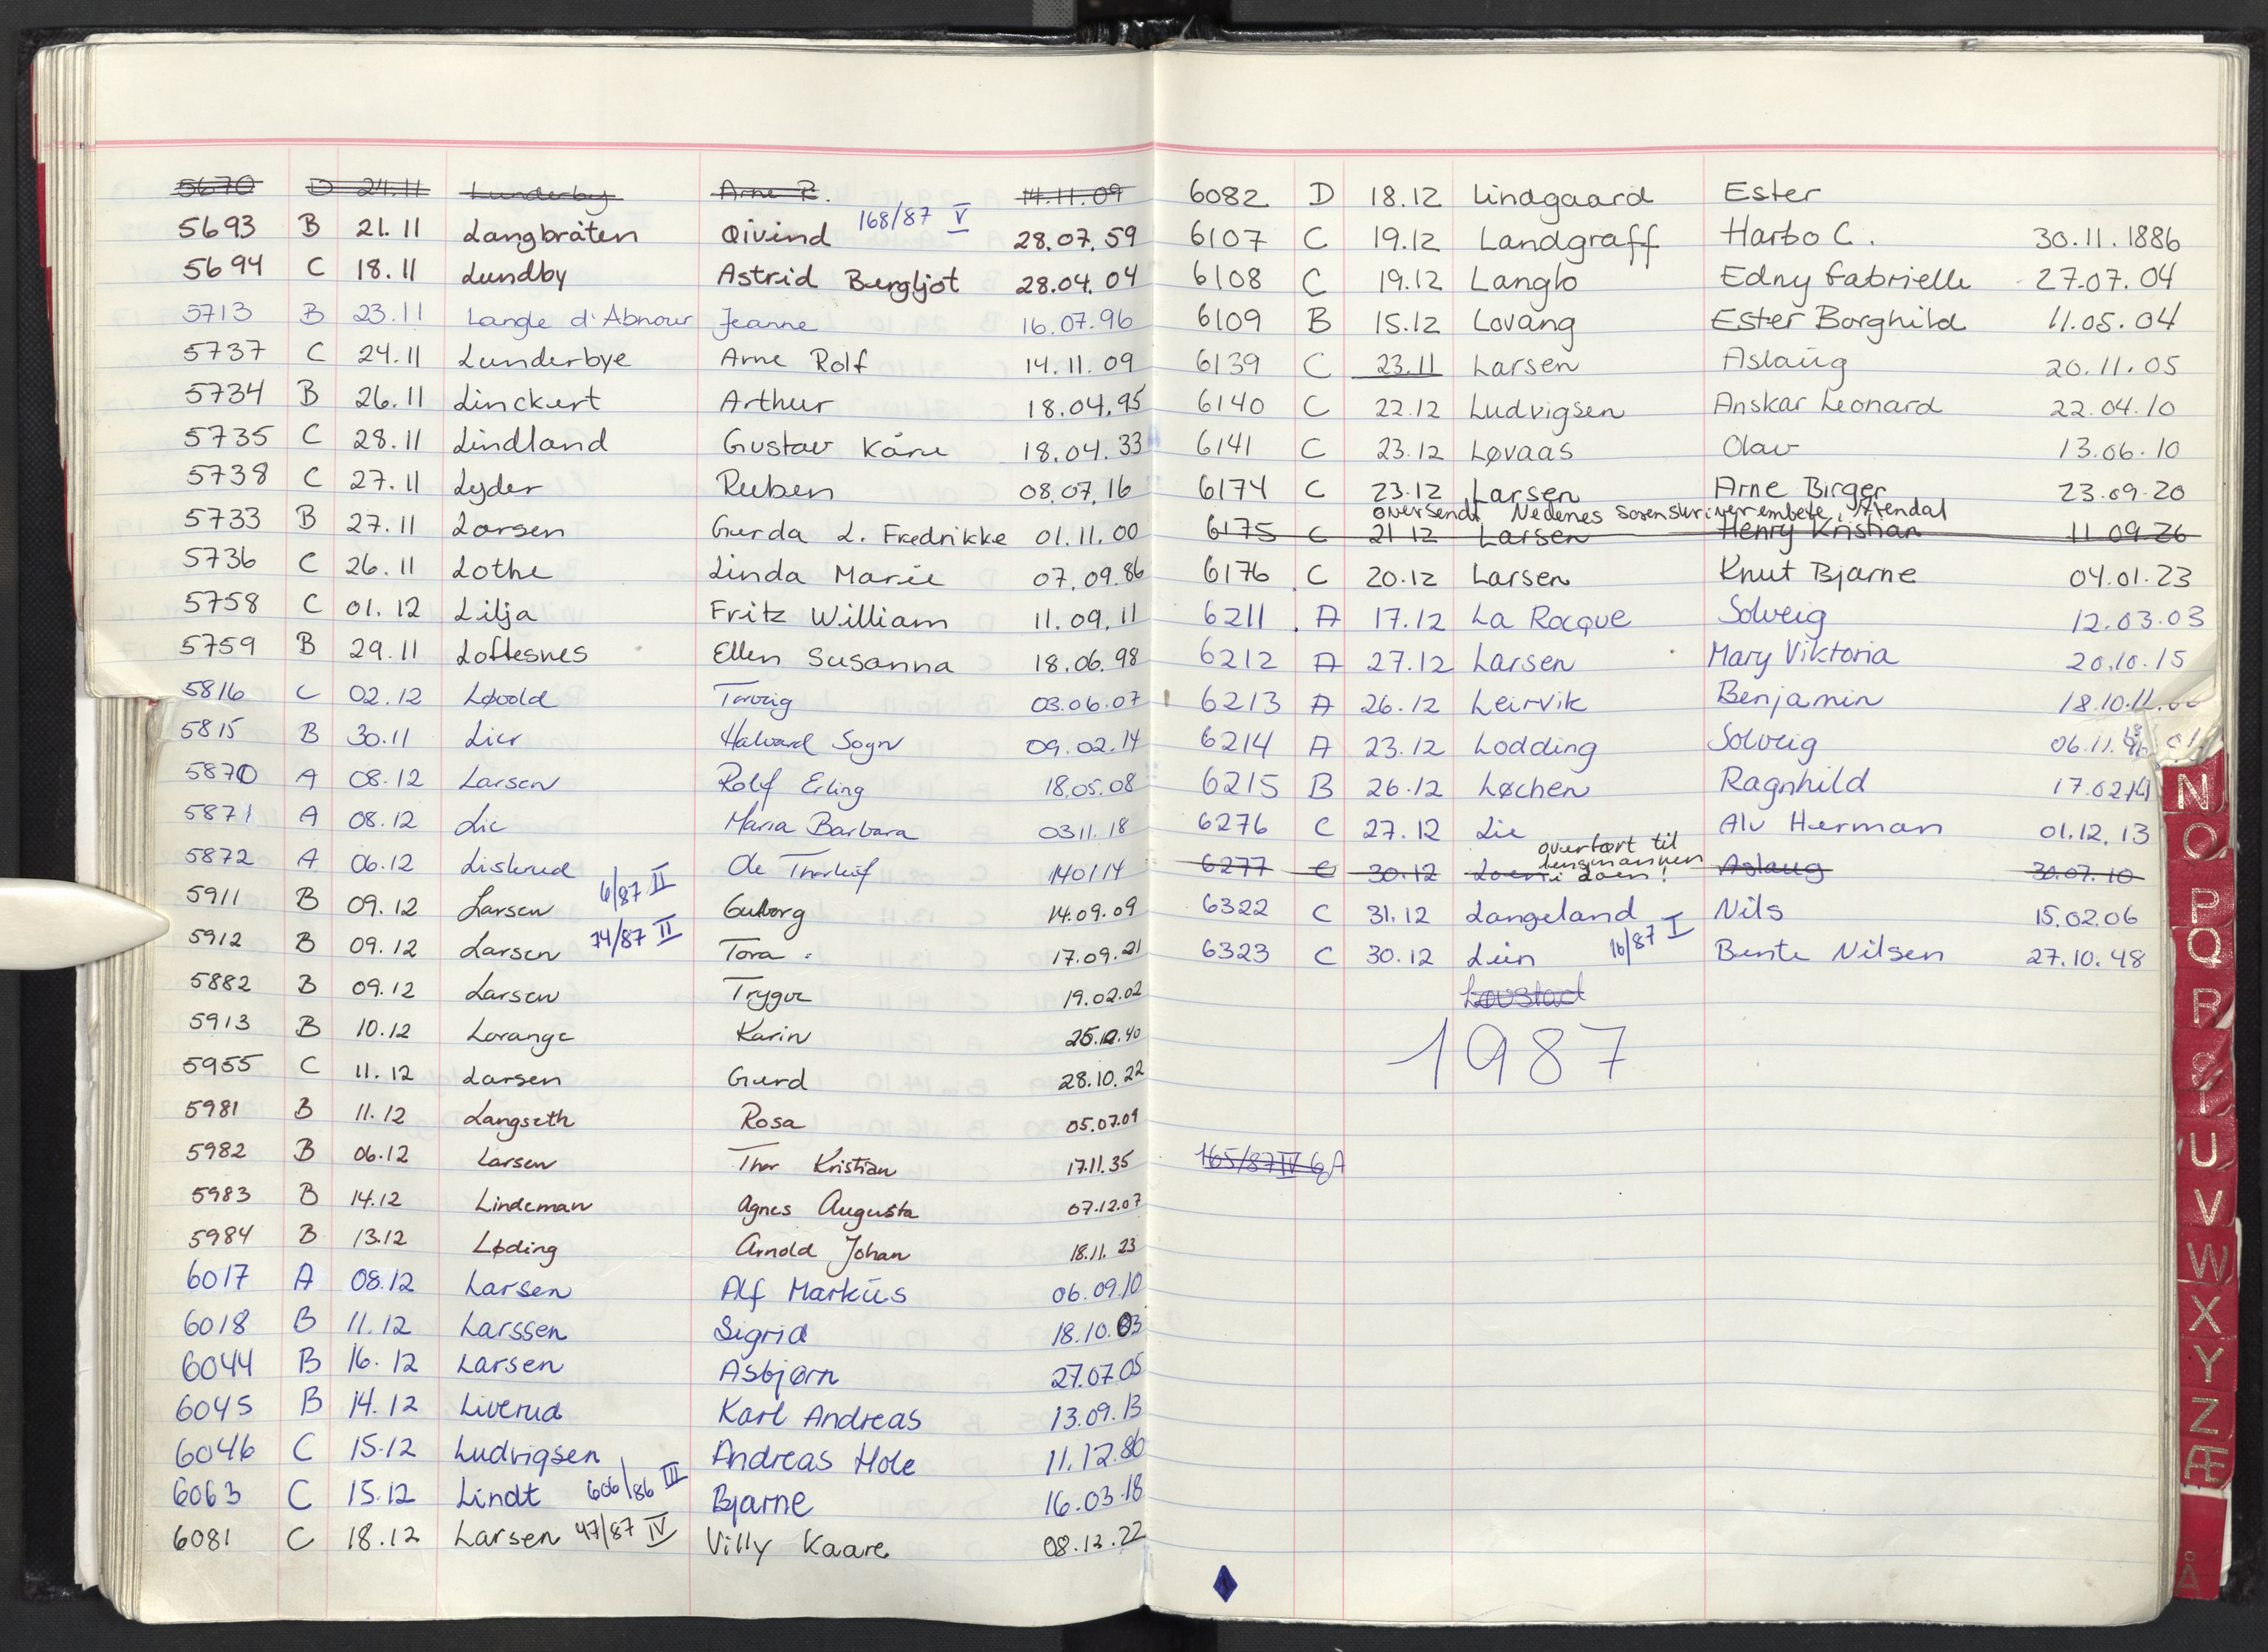 5670 D 24.11 Lunderby Arne R. 14.11.09
168/87 V
5693 B 21.11 Langbråten Øivind 28.07.59
5694 C 18.11 Lundby Astrid Bergljot 28.04.04
5713 B 23.11 Langle d'Abnour Jeanne 16.07.96
5737 C 24.11 Lunderbye Arne Rolf 14.11.09
5734 B 26.11 Linckert Arthur 18.04.95
5735 C 28.11 Lindland Gustav Kåre 18.04.33
5738 C 27.11 Lyder Ruben 08.07.16
5733 B 27.11 Larsen Gerda L. Fredrikke 01.11.00
5736 C 26.11 Lothe Linda Marie 07.09.86
5758 C 01.12 Lilja Fritz William 11.09.11
5759 B 29.11 Loftesnes Ellen Susanna 18.06.98
5816 C 02.12 Løvold Torveig 03.06.07
5815 B 30.11 Lier Halvard Sogn 09.02.14
5870 A 08.12 Larsen Rolf Erling 18.05.08
5871 A 08.12 Lie Maria Barbara 0311.18
5872 A 06.12 Liskrud Ole Thorleif 140114
6/87 II
5911 B 09.12 Larsen Gulborg 14.09.09
5912 B 09.12 Larsen 74/87 II Tora 17.09.21
5882 B 09.12 Larsen Trygve 19.02.02
5913 B 10.12 Lorange Karin 25.12.40
5955 C 11.12 Larsen Gerd 28.10.22
5981 B 11.12 Langseth Rosa 05.07.01
5982 B 06.12 Larsen Thor Kristian 17.11.35
5983 B 14.12 Lindeman Agnes Augusta 07.12.07
5984 B 13.12 Løding Arnold Johan 18.11.23
6017 A 08.12 Larsen Alf Markus 06.09.10
6018 B 11.12 Larssen Sigrid 18.10.03
6044 B 16.12 Larsen Asbjørn 27.07.05
6045 B 14.12 Liverud Karl Andreas 13.09.13
6046 C 15.12 Ludvigsen Andreas Hole 11.12.86
6063 C 15.12 Lindt 606/86 III Bjarne 16.03.18
6081 C 18.12 Larsen 47/87 IV Villy Kaare 08.12.22
6082 D 18.12 Lindgaard Ester
6107 C 19.12 Landgraff Harbo C. 30.11.1886
6108 C 19.12 Langlo Edny Gabrielle 27.07.04
6109 B 15.12 Lovang Ester Borghild 11.05.04
6139 C 23.11 Larsen Aslaug 20.11.05
6140 C 22.12 Ludvigsen Anskar Leonard 22.04.10
6141 C 23.12 Løvaas Olav 13.06.10
6174 C 23.12 Larsen Arne Birger 23.09.20
oversendt Nedenes sorenskriverembete, Arendal
6175 C 21.12 Larsen Henry Kristian 11.09.26
6176 C 20.12 Larsen Knut Bjarne 04.01.23
6211 A 17.12 La Rocque Solveig 12.03.03
6212 A 27.12 Larsen Mary Viktoria 20.10.15
6213 A 26.12 Leirvik Benjamin 18.10.11
6214 A 23.12 Lodding Solveig 06.11.
6215 B 26.12 Løchen Ragnhild 17.0214
6276 C 27.12 Lie Alv Herman 01.12.13
overført til
lensmannen
6277 C 30.12 i Loen! Aslaug 30.07.10
6322 C 31.12 Langeland Nils 15.02.06
6323 C 30.12 Lien 16/87 I Bente Nilsen 27.10.48
Lovstad
1987
165/87 IV 6A
N
O
P
Q
R
S
T
U
V
W
X
Y
Z
Æ
Å